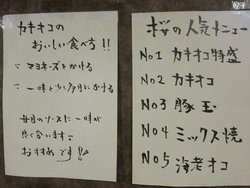 カキオコの
おいしい食べ方!!
マヨネーズをかける
一味を少々多目にかける
毎日のソースに一味が
良く合います
おすすめです!!
桜の人気メニュー
No1 カキオコ特盛
No2 カキオコ
No3 豚玉
No4 ミックス焼
No5 海老オコ